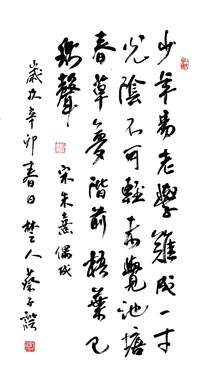 少年易老學難成一寸
光陰不可輕未覺池塘
春草夢階前梧葉已
秋聲 宋朱熹偶成
歲次辛卯春日楚人蔡子諤